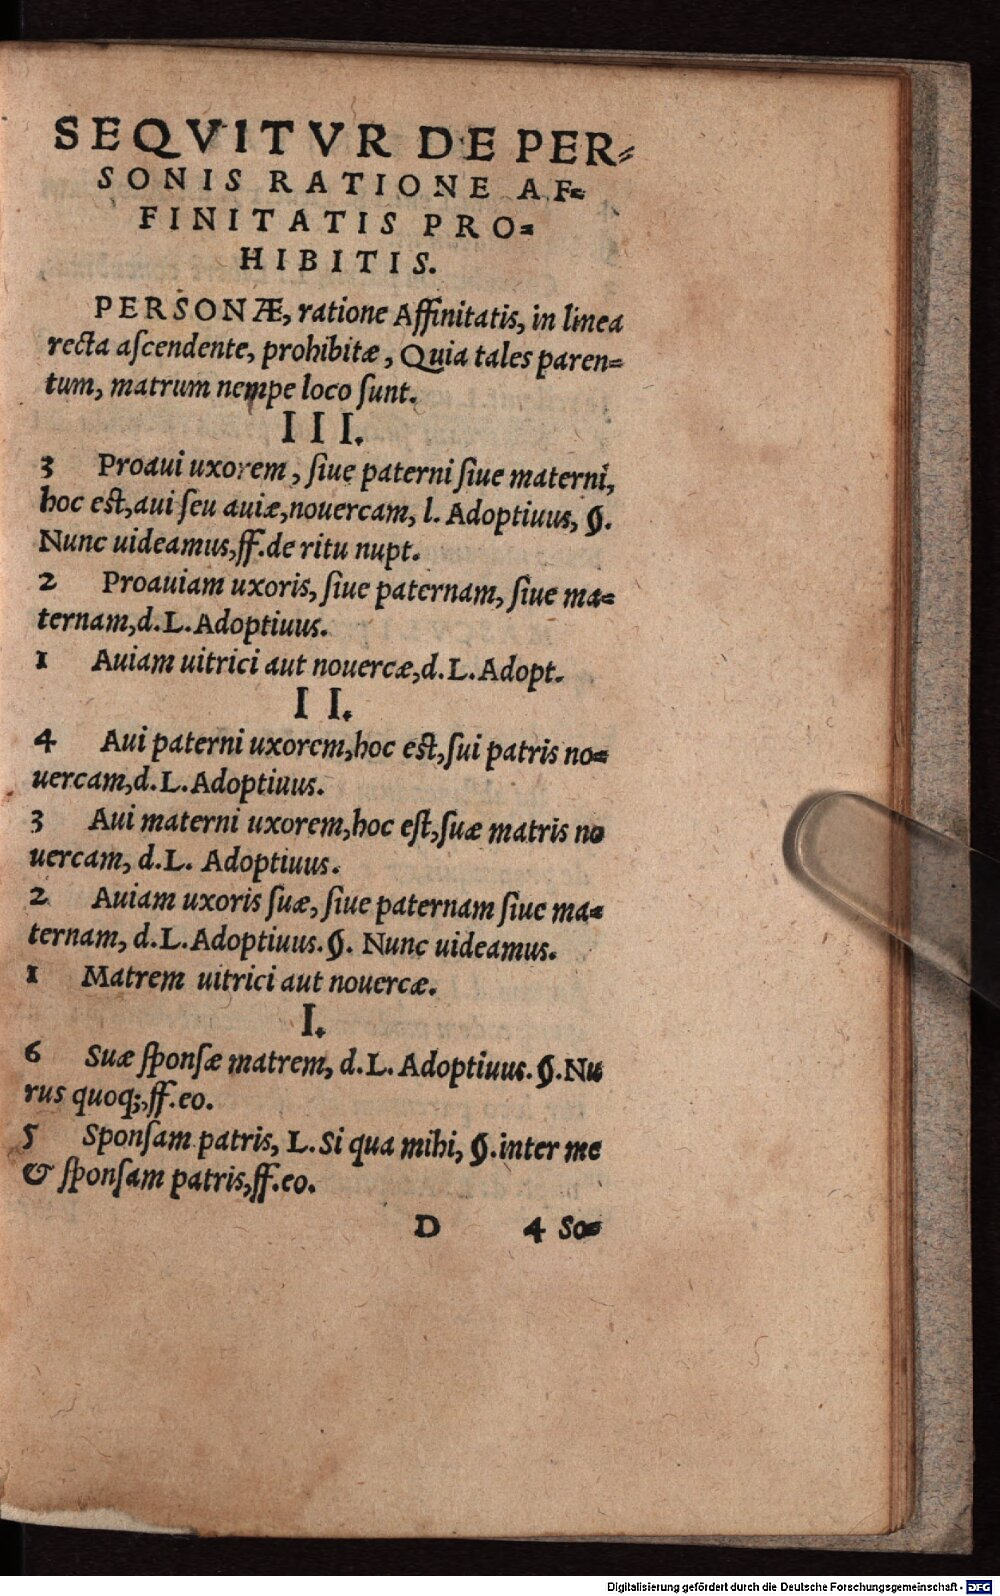 SEQVITVR DE PER⸗
SONIS RATIONE AF⸗
FINITATIS PRO⸗
HIBITIS.
PERSONÆ, ratione Affinitatis, in linea
recta aſcendente, prohibitæ, Quia tales paren⸗
tum, matrum nempe loco ſunt.
III.
3 Proaui uxorem, ſiue paterni ſiue materni,
hoc eſt, aui ſeu auiæ, nouercam, l. Adoptiuus, §.
Nunc uideamus, ff. de ritu nupt.
2 Proauiam uxoris, ſiue paternam, ſiue ma⸗
ternam, d. L. Adoptiuus.
1 Auiam uitrici aut nouercæ, d. L. Adopt.
II.
4 Aui paterni uxorem, hoc eſt, ſui patris no⸗
uercam, d. L. Adoptiuus.
3 Aui materni uxorem, hoc eſt, ſuæ matris no
uercam, d. L. Adoptiuus.
2 Auiam uxoris ſuæ, ſiue paternam ſiue ma⸗
ternam, d. L. Adoptiuus. §. Nunc uideamus.
1 Matrem uitrici aut nouercæ.
I.
6 Suæ ſponſæ matrem, d. L. Adoptiuus. §. Nu
rus quoq;, ff. eo.
5 Sponſam patris, L. Si qua mihi, §. inter me
& ſponſam patris, ff. eo.
D 4 So⸗
Digitalisierung gefördert durch die Deutsche Forschungsgemeinschaft - DFG